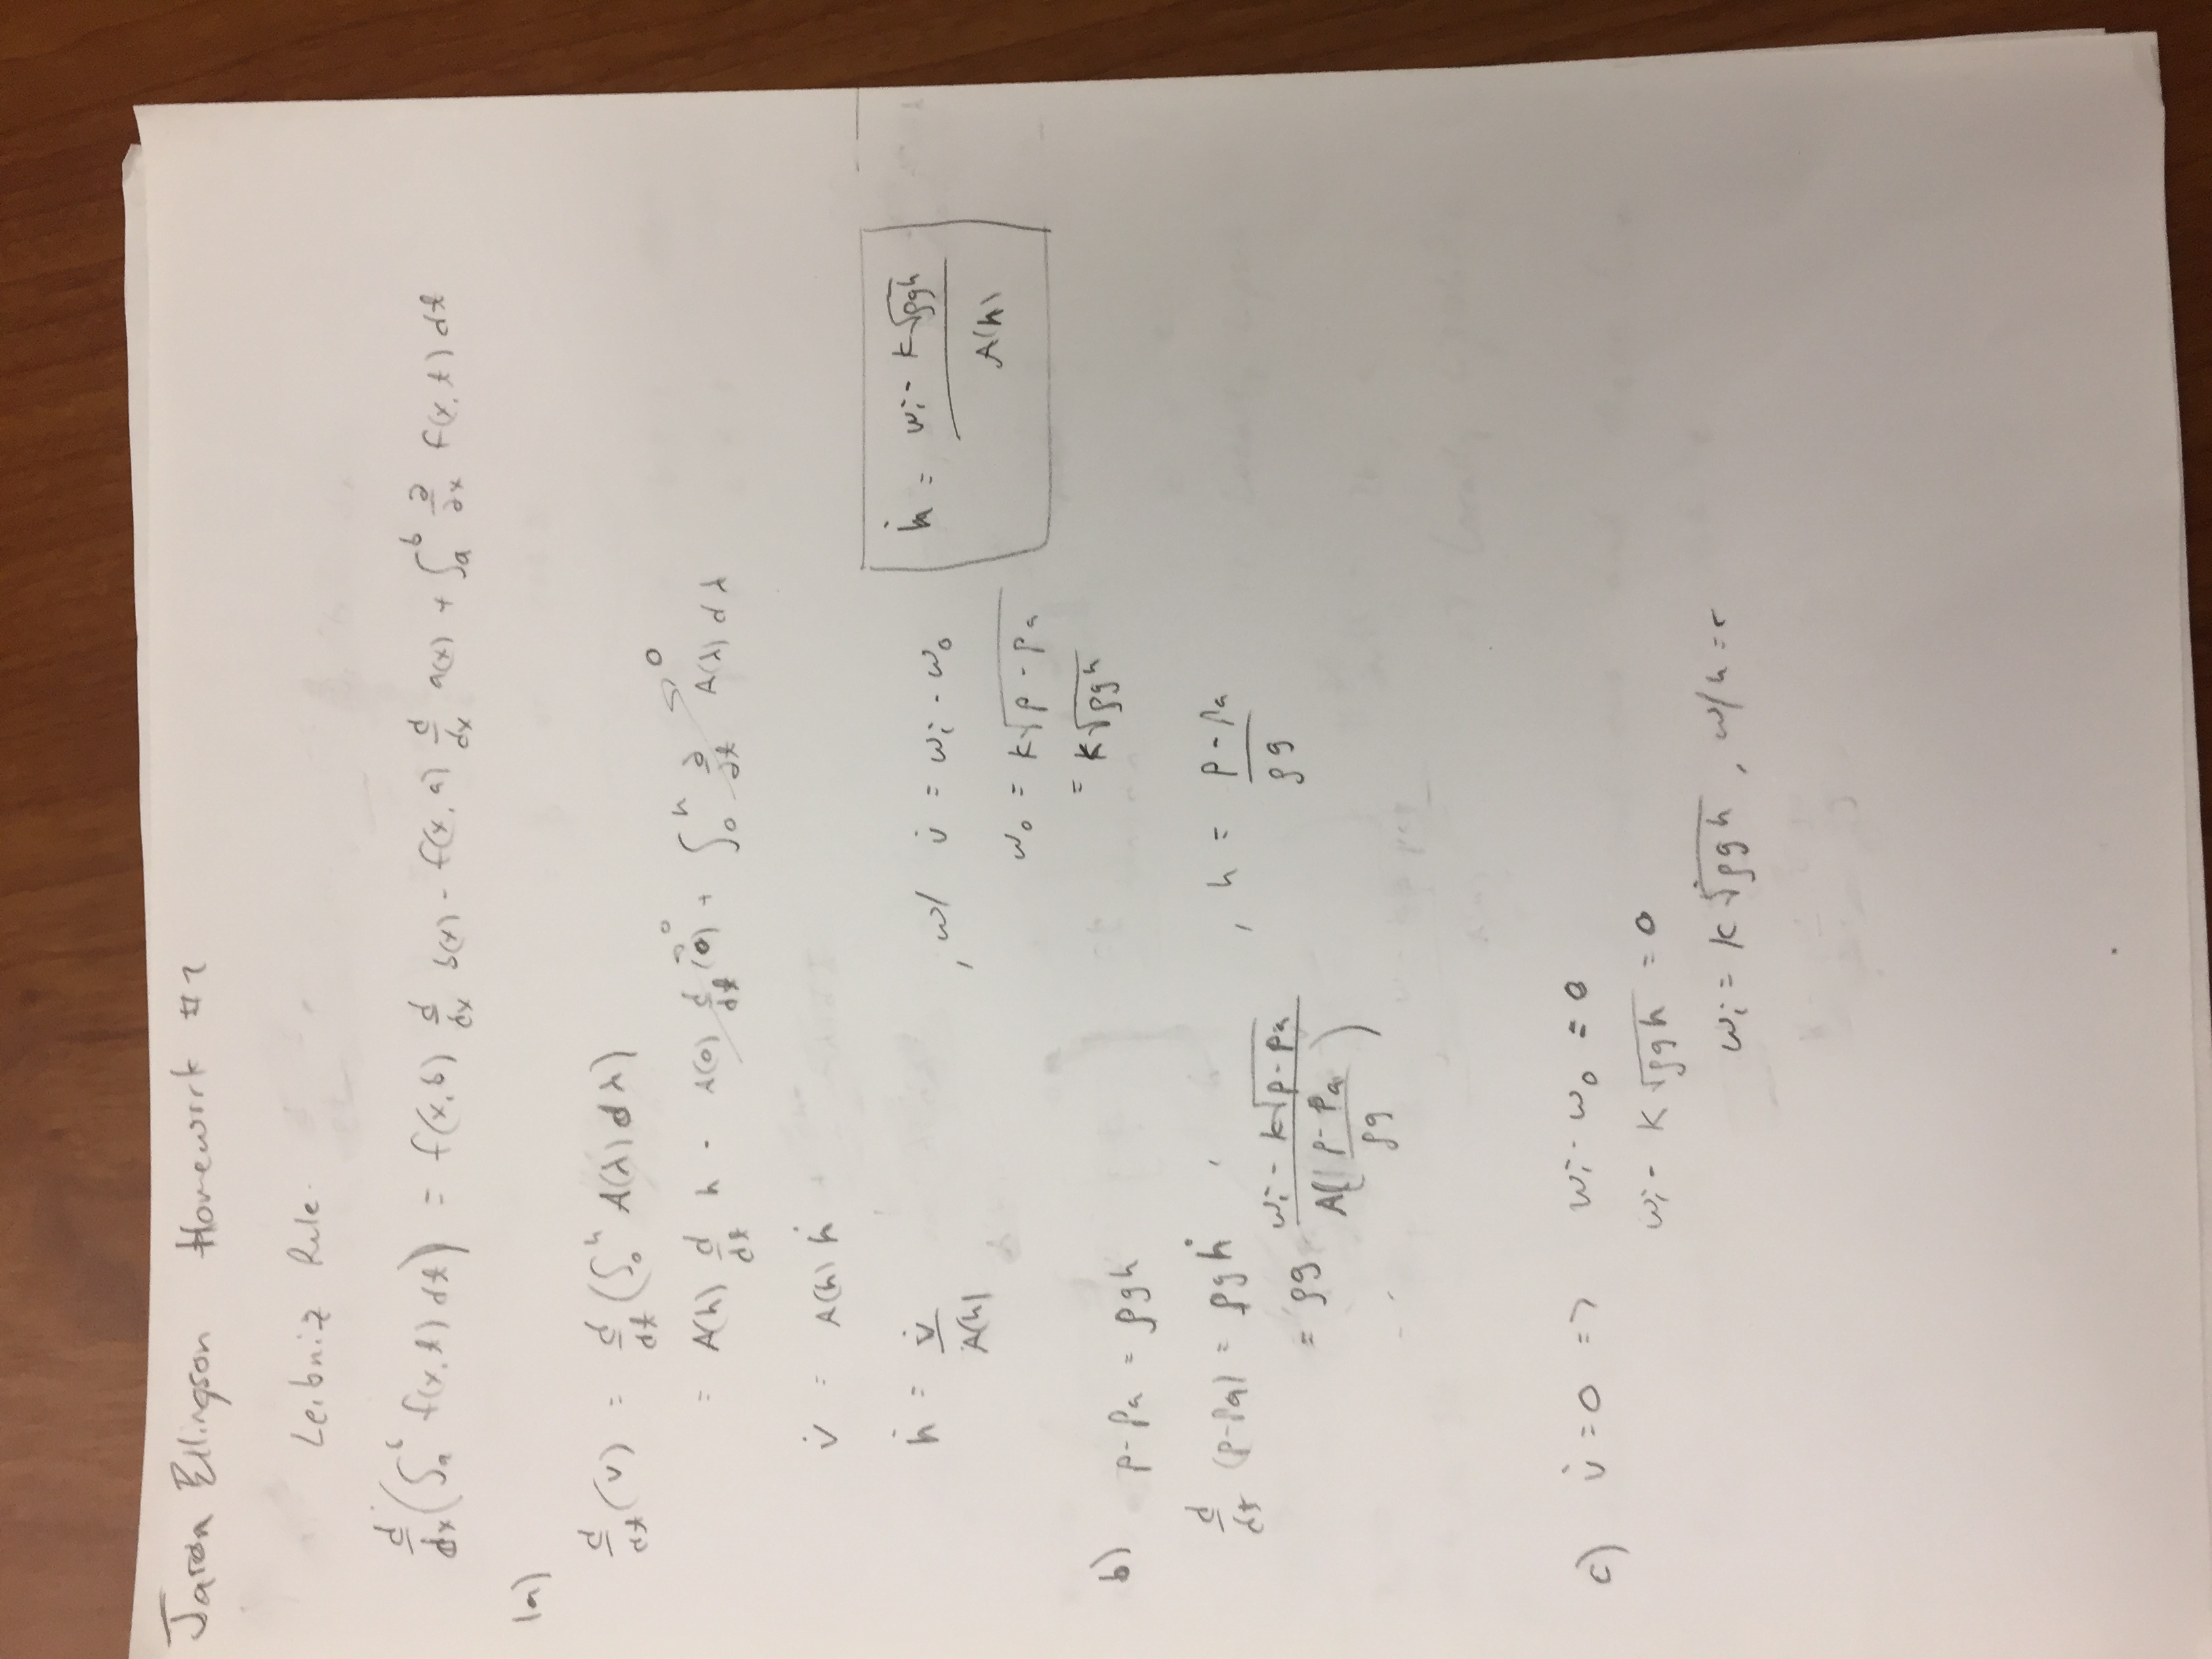 Jaron Ellingson Homework #1
Leibniz Rule.
d/dx (∫_a^b f(x,t) dt) = f(x,b) d/dx b(x) - f(x,a) d/dx a(x) + ∫_a^b ∂/∂x f(x,t) dt
1a)
d/dt (v) = d/dt (∫_0^h A(λ) dλ)
= A(h) d/dt h - A(0) d/dt (0) → 0 + ∫_0^h ∂/∂t A(λ) dλ → 0
v̇ = A(h) ḣ
ḣ = v̇ / A(h) , w/ v̇ = wi - wo
ḣ = (wi - k√(ρgh)) / A(h)
wo = k√(p - pa)
= k√(ρgh)
b) p - pa = ρgh
d/dt (p-pa) = ρgḣ , h = (p - pa) / (ρg)
= ρg (wi - k√(p - pa)) / A((p - pa)/(ρg))
c) v̇ = 0 => wi - wo = 0
wi - k√(ρgh) = 0
wi = k√(ρgh) , w/ h = r